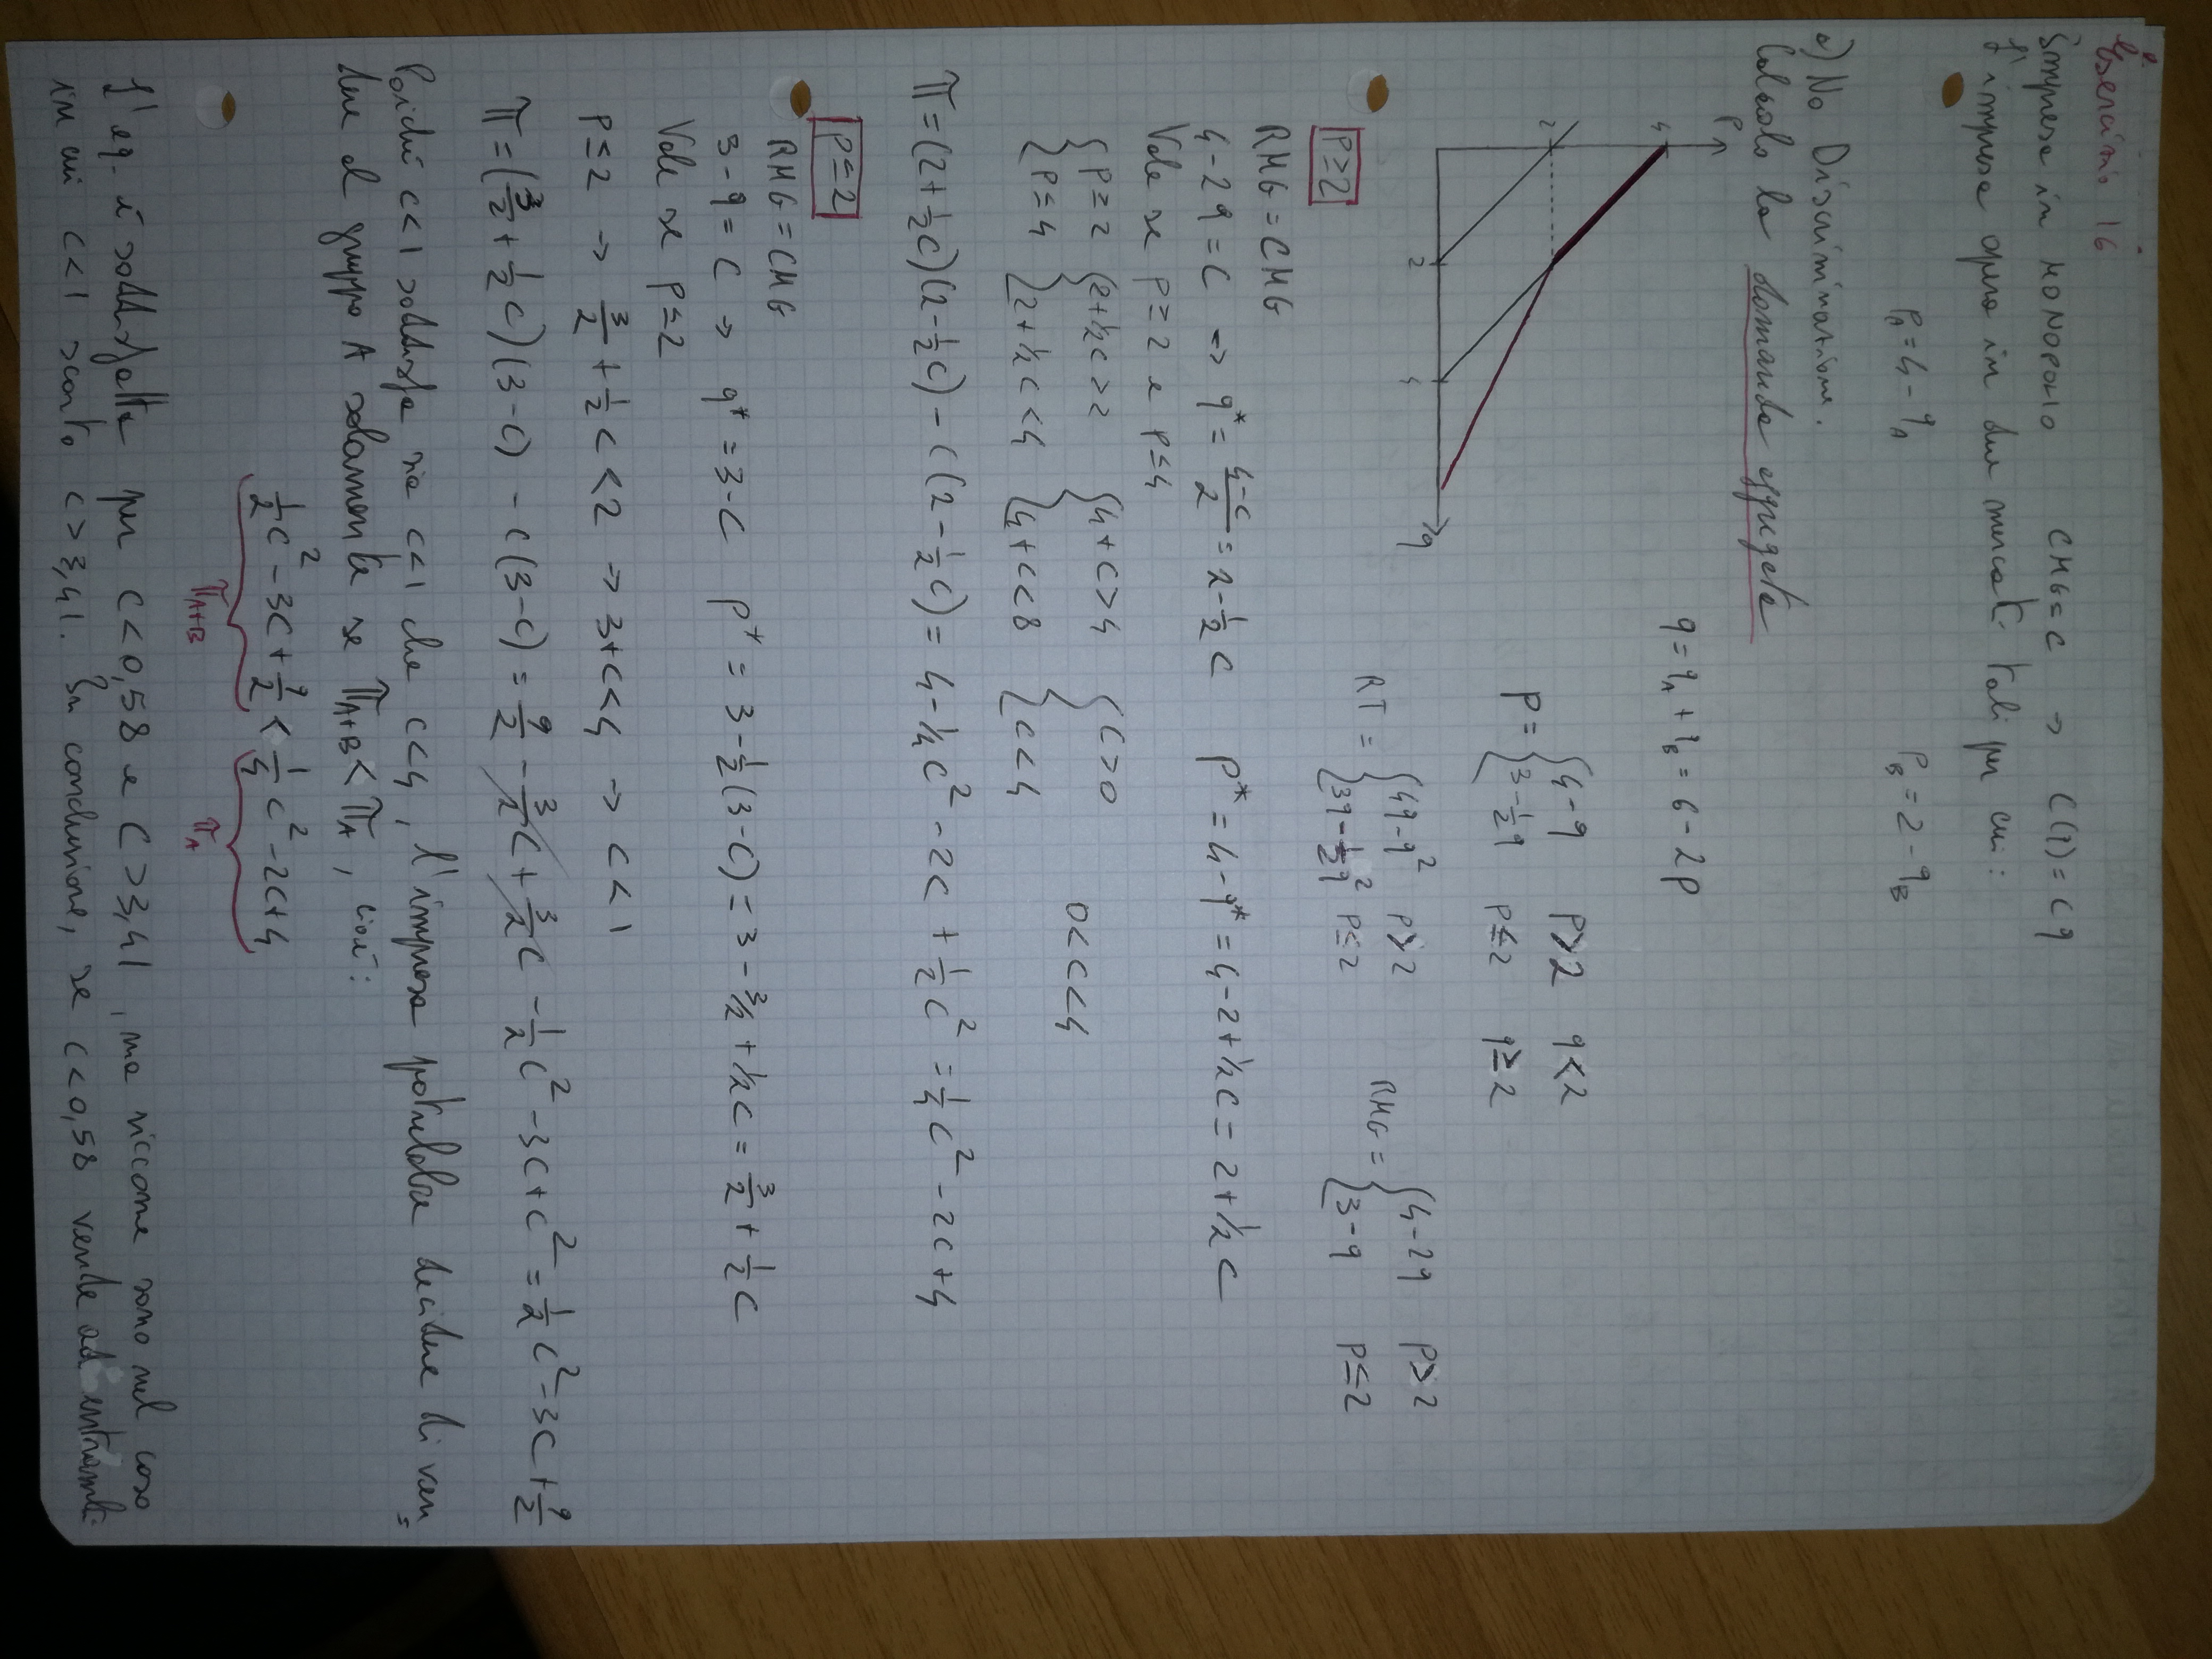 Esercizio 16
Impresa in MONOPOLIO CMG=C → C(q)=Cq
L'impresa opera in due mercati tali per cui:
P_A=4-q_A P_B=2-q_B
a) No Discriminazione.
Calcolo la domanda aggregata
P
4
2
2 4 q
q=q_A+q_B=6-2p
p={4-q p>2 q<2
3-1/2q p≤2 q≥2
RT={4q-q² p>2
3q-1/2q² p≤2
RMG={4-2q p>2
3-q p≤2
P≥2
RMG=CMG
4-2q=C → q*=(4-C)/2=2-1/2C p*=4-q*=4-2+1/2C=2+1/2C
Vale se p≥2 e p≤4
{p≥2 {2+1/2C>2 {4+C>4 {C>0
p≤4 2+1/2C<4 4+C<8 C<4
0<C<4
π=(2+1/2C)(2-1/2C)-C(2-1/2C)=4-1/4C²-2C+1/2C²=1/4C²-2C+4
p≤2
RMG=CMG
3-q=C → q*=3-C p*=3-1/2(3-C)=3-3/2+1/2C=3/2+1/2C
Vale se p≤2
p≤2 → 3/2+1/2C<2 → 3+C<4 → C<1
π=(3/2+1/2C)(3-C)-C(3-C)=9/2-3/2C+3/2C-1/2C²-3C+C²=1/2C²-3C+9/2
Poiché C<1 soddisfa sia C<1 che C<4, l'impresa potrebbe decidere di ven=
dere al gruppo A solamente se π_A+B<π_A, cioè:
1/2C²-3C+9/2<1/4C²-2C+4
π_A+B π_A
L'eq. è soddisfatta per C<0,58 e C>3,41, ma siccome sono nel caso
in cui C<1 scarto C>3,41. In conclusione, se C<0,58 vende ad entrambi